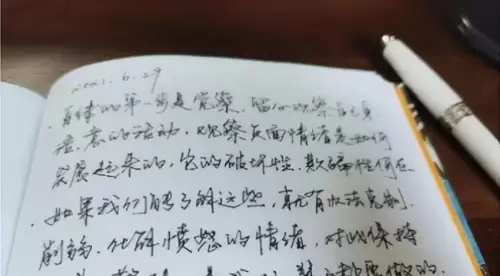 2021.6.29
自律的第一步是觉察，留心观察自己身
语、意的活动，观察负面情绪是如何
发展起来的，它的破坏性、欺骗性何在
如果我们能了解这些，就有办法克制、
削弱、化解愤怒的情绪，对此保持